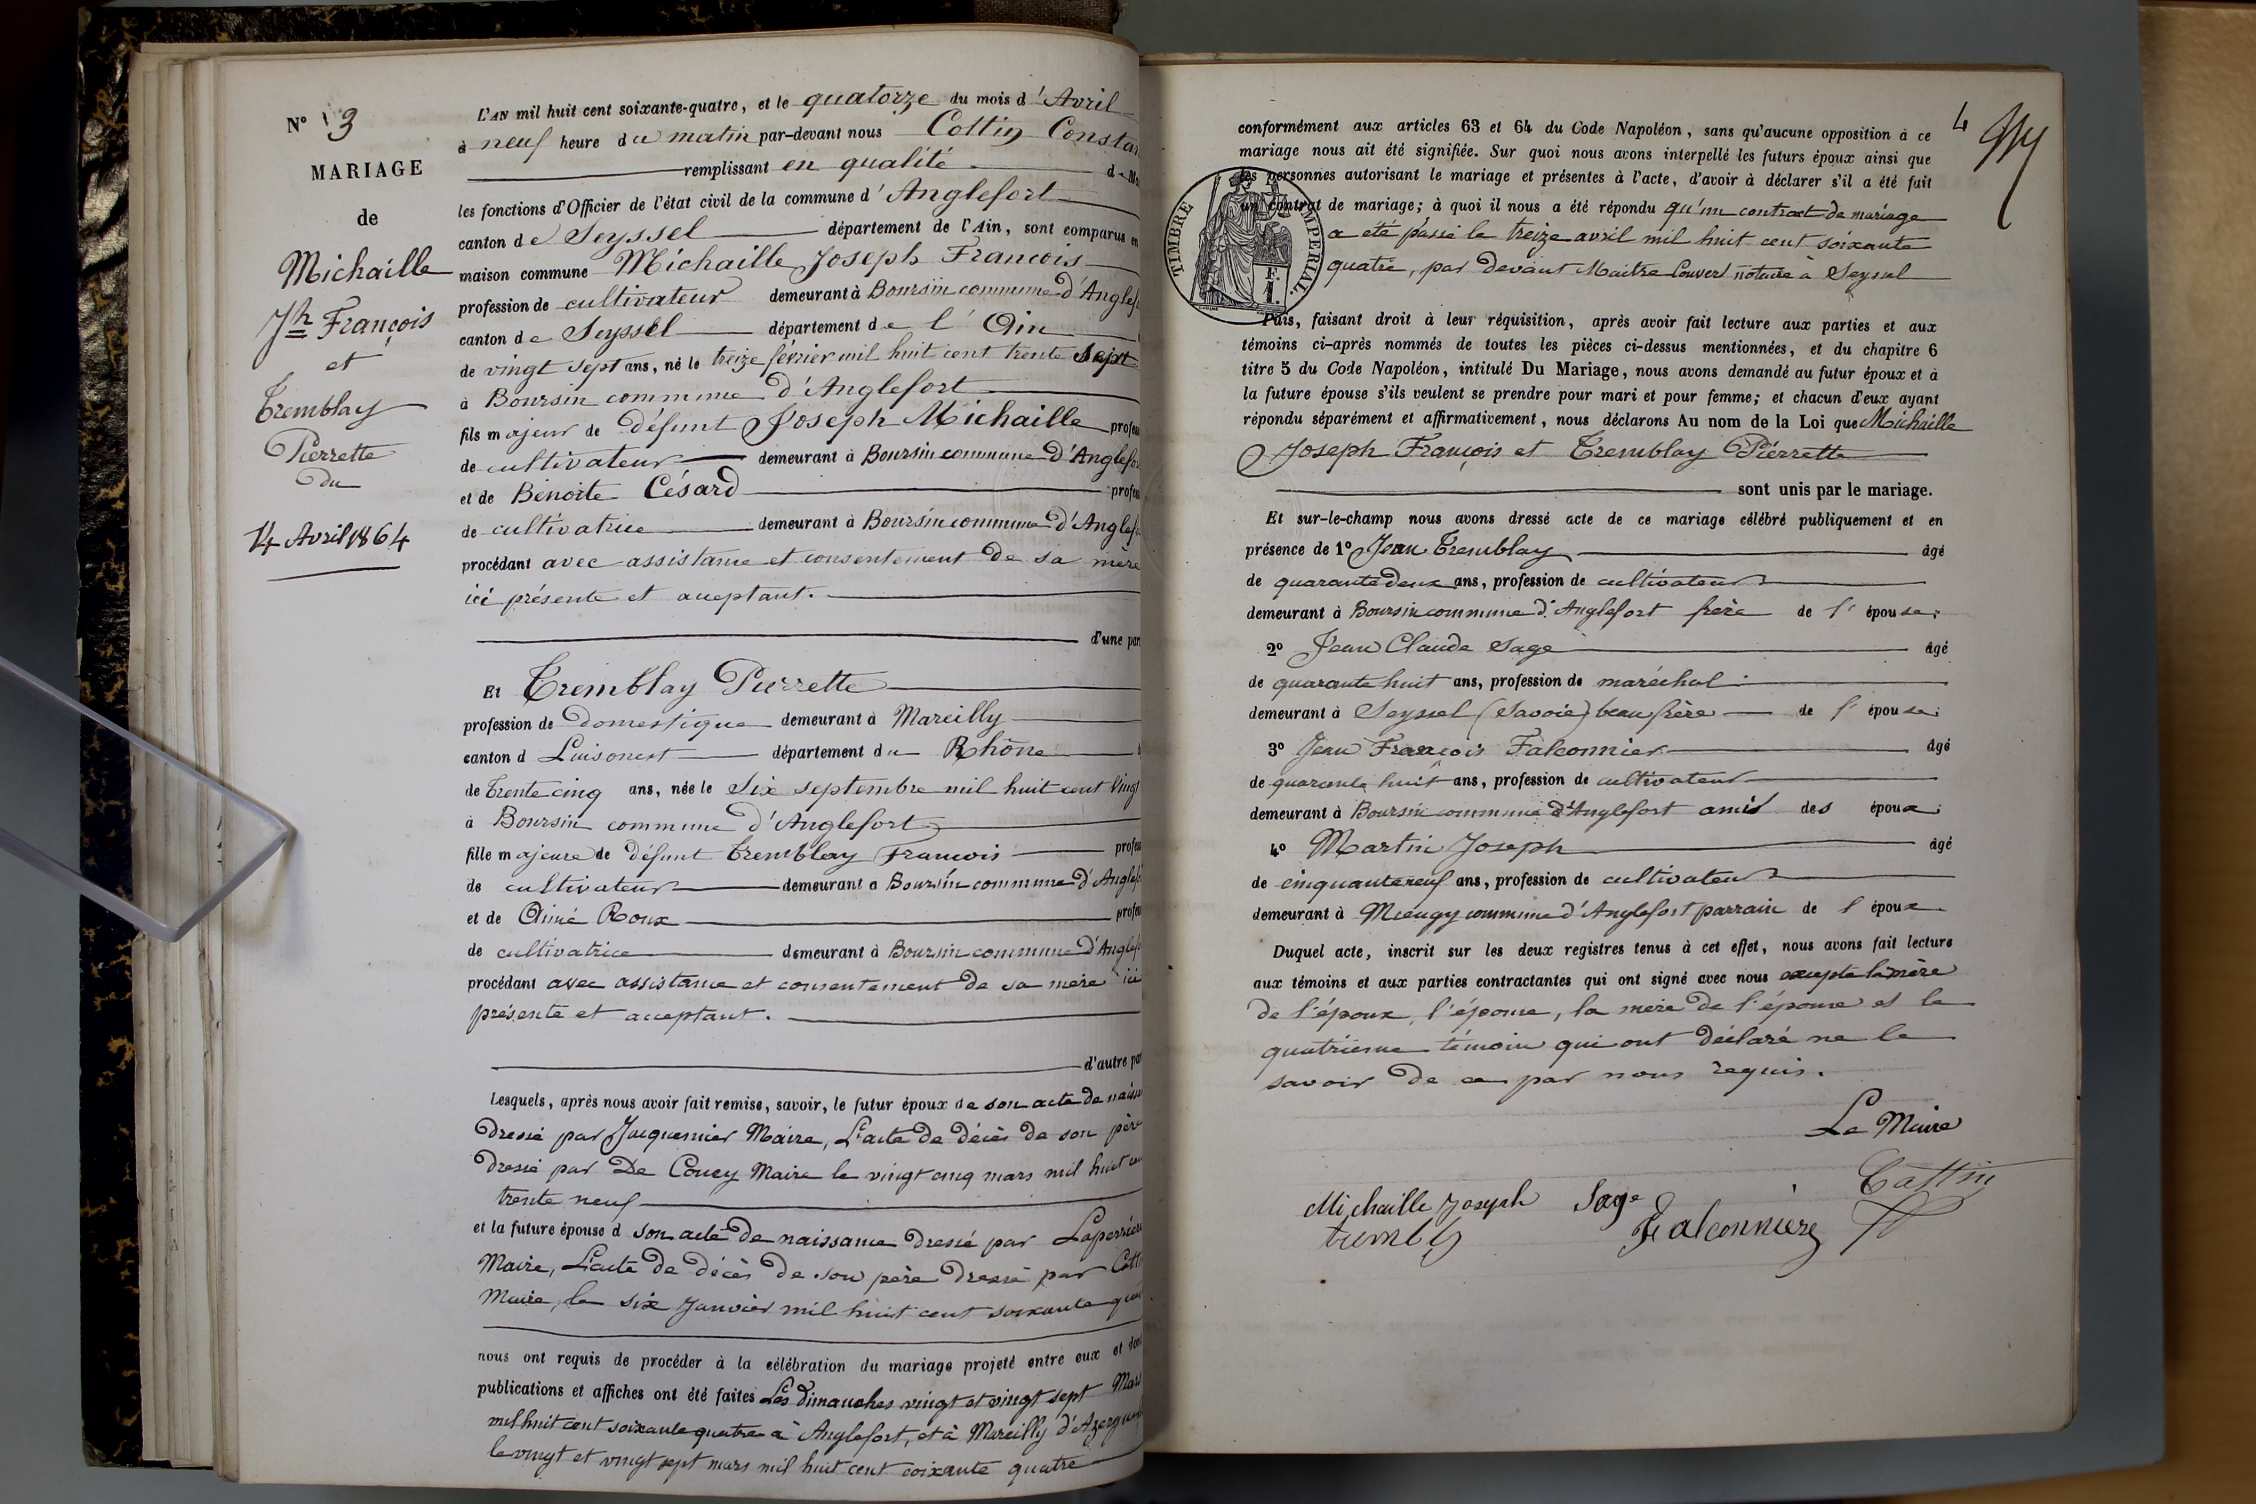 N° 3
MARIAGE
de
Michaille
Jh François
et
Tremblay
Pierrette
Du
14 Avril 1864
L'AN mil huit cent soixante-quatre, et le quatorze du mois d'Avril
à neuf heure du matin par-devant nous Cottin Constan
remplissant en qualité d
les fonctions d'Officier de l'état civil de la commune d'Anglefort
canton de Seyssel département de l'Ain, sont comparus en
maison commune Michaille Joseph Francois
profession de cultivateur demeurant à Boursin commune d'Anglef
canton de Seyssel département de l'Ain
de vingt sept ans, né le treize février mil huit cent trente sept
à Boursin commune d'Anglefort
fils majeur de défunt Joseph Michaille profes
de cultivateur demeurant à Boursin commune d'Anglefor
et de Benoite Césard profes
de cultivatrice demeurant à Boursin commune d'Anglef
procédant avec assistance et consentement de sa mère
ici présente et acceptant.
d'une par
Et Tremblay Pierrette
profession de domestique demeurant à Marcilly
canton d Limonest département du Rhône
de trente cinq ans, née le six septembre mil huit cent vingt
à Boursin commune d'Anglefort
fille majeure de défunt Tremblay Francois profes
de cultivateur demeurant à Boursin commune d'Anglef
et de Aimé Roux profes
de cultivatrice demeurant à Boursin commune d'Anglef
procédant avec assistance et consentement de sa mère ici
présente et acceptant.
d'autre par
Lesquels, après nous avoir fait remise, savoir, le futur époux de son acte de naiss
dressé par Jacquemier Maire, L'acte de décès de son père
dressé par De Coucy Maire le vingt cinq mars mil huit cen
trente neuf
et la future épouse d son acte de naissance dressé par Laperrière
Maire, L'acte de décès de son père dressé par Cotti
Maire, le six Janvier mil huit cent soixante quat
nous ont requis de procéder à la célébration du mariage projeté entre eux et dont
publications et affiches ont été faites Les dimanches vingt et vingt sept Mars
mil huit cent soixante quatre à Anglefort, et à Marcilly d'Azergues
le vingt et vingt sept mars mil huit cent soixante quatre
4
conformément aux articles 63 et 64 du Code Napoléon, sans qu'aucune opposition à ce
mariage nous ait été signifiée. Sur quoi nous avons interpellé les futurs époux ainsi que
les personnes autorisant le mariage et présentes à l'acte, d'avoir à déclarer s'il a été fait
un contrat de mariage; à quoi il nous a été répondu qu'un contract de mariage
a été passé le treize avril mil huit cent soixante
quatre, par devant Maitre Couvert notaire à Seyssel
TIMBRE IMPERIAL.
1 F.
Puis, faisant droit à leur réquisition, après avoir fait lecture aux parties et aux
témoins ci-après nommés de toutes les pièces ci-dessus mentionnées, et du chapitre 6
titre 5 du Code Napoléon, intitulé Du Mariage, nous avons demandé au futur époux et à
la future épouse s'ils veulent se prendre pour mari et pour femme; et chacun d'eux ayant
répondu séparément et affirmativement, nous déclarons Au nom de la Loi que Michaille
Joseph François et Tremblay Pierrette
sont unis par le mariage.
Et sur-le-champ nous avons dressé acte de ce mariage célébré publiquement et en
présence de 1° Jean Tremblay âgé
de quarante deux ans, profession de cultivateur
demeurant à Boursin commune d'Anglefort frère de l'épouse;
2° Jean Claude Sage âgé
de quarante huit ans, profession de maréchal
demeurant à Seyssel (Savoie) beau frère de l'épouse;
3° Jean François Falconnier âgé
de quarante huit ans, profession de cultivateur
demeurant à Boursin commune d'Anglefort amis des époux;
4° Martin Joseph âgé
de cinquante neuf ans, profession de cultivateur
demeurant à Mieugy commune d'Anglefort parrain de l'époux
Duquel acte, inscrit sur les deux registres tenus à cet effet, nous avons fait lecture
aux témoins et aux parties contractantes qui ont signé avec nous excepte la mère
de l'époux, l'épouse, la mère de l'épouse et le
quatrieme témoin qui ont déclaré ne le
savoir de ce par nous requis.
Le Maire
Cottin
Michaille Joseph Sage
Falconnier